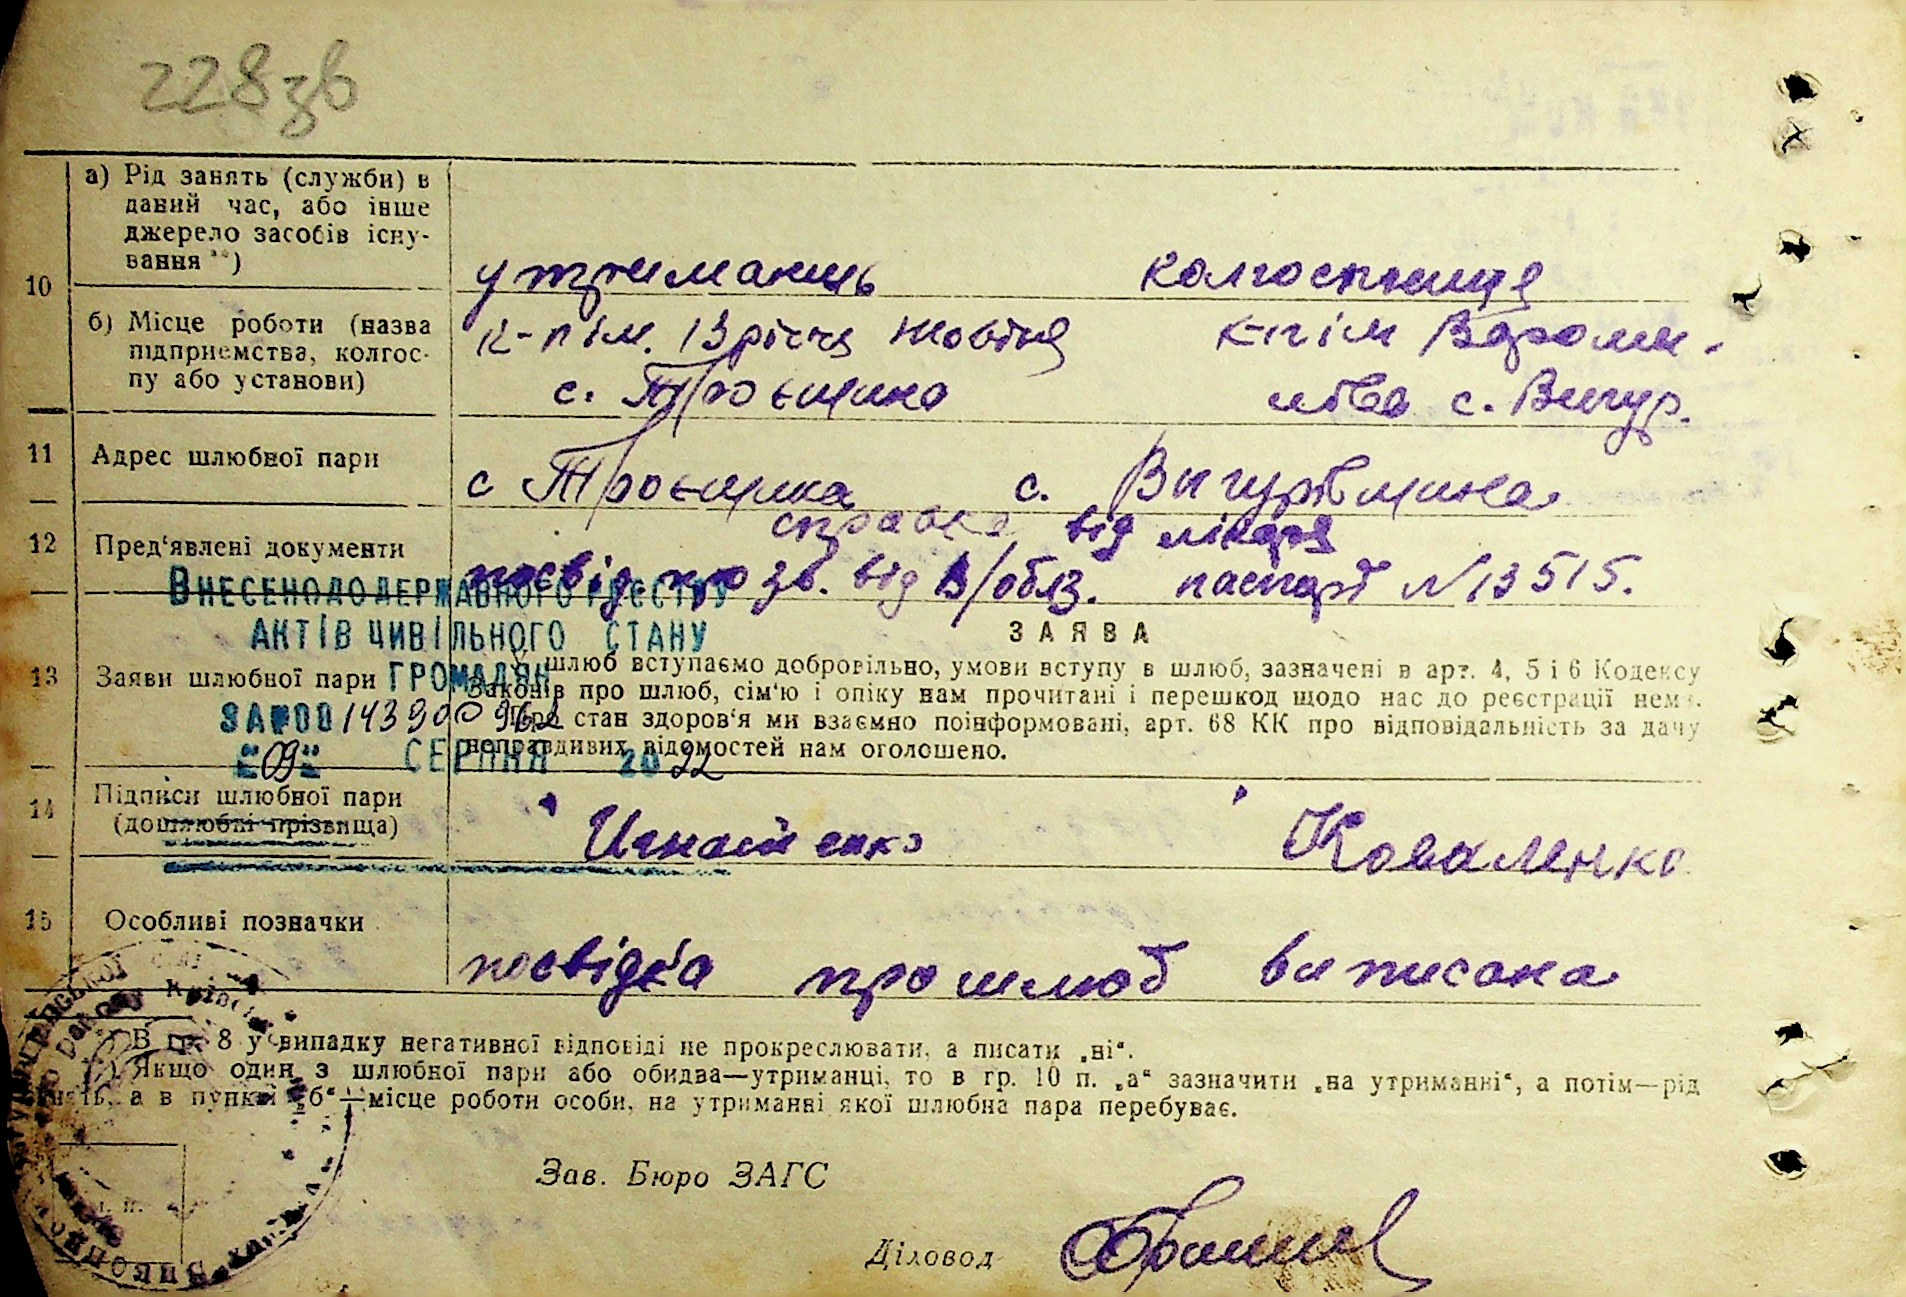 228зв
а) Рід занять (служби) в
даний час, або інше
джерело засобів існу-
вання **)
10
утриманць колгоспниця
б) Місце роботи (назва
підприємства, колгос-
пу або установи)
к-п ім. 13 річчя Жовтня к-п ім Ворош-
с. Троєщина илова с. Вигур.
11 Адрес шлюбної пари
с Троєщина с. Вигурівщина
12 Пред'явлені документи
справка від лікаря
посвід. про зв. від в/обяз. паспорт N 13515.
Внесено до Державного реєстру
актів цивільного стану
громадян
за № 00143900962
"09" серпня 2022
13 Заяви шлюбної пари
ЗАЯВА
У шлюб вступаємо добровільно, умови вступу в шлюб, зазначені в арт. 4, 5 і 6 Кодексу
Законів про шлюб, сім'ю і опіку нам прочитані і перешкод щодо нас до реєстрації нема.
Про стан здоров'я ми взаємно поінформовані, арт. 68 КК про відповідальність за дачу
неправдивих відомостей нам оголошено.
14 Підписи шлюбної пари
(дошлюбні прізвища)
Игнатенко Коваленко
15 Особливі позначки
посвідка про шлюб виписана
*) В гр. 8 у випадку негативної відповіді не прокреслювати, а писати „ні“.
**) Якщо один з шлюбної пари або обидва—утриманці, то в гр. 10 п. „а“ зазначити „на утриманні“, а потім—рід
занять, а в пункті „б“—місце роботи особи, на утриманні якої шлюбна пара перебуває.
Зав. Бюро ЗАГС
Діловод